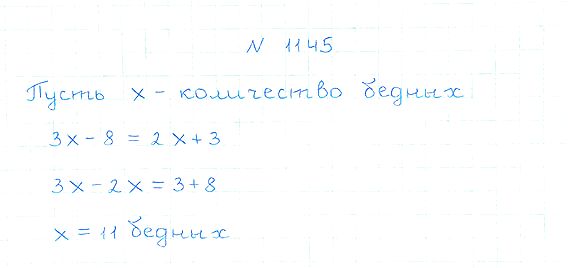 N 1145
Пусть x - количество бедных
3x - 8 = 2x + 3
3x - 2x = 3 + 8
x = 11 бедных